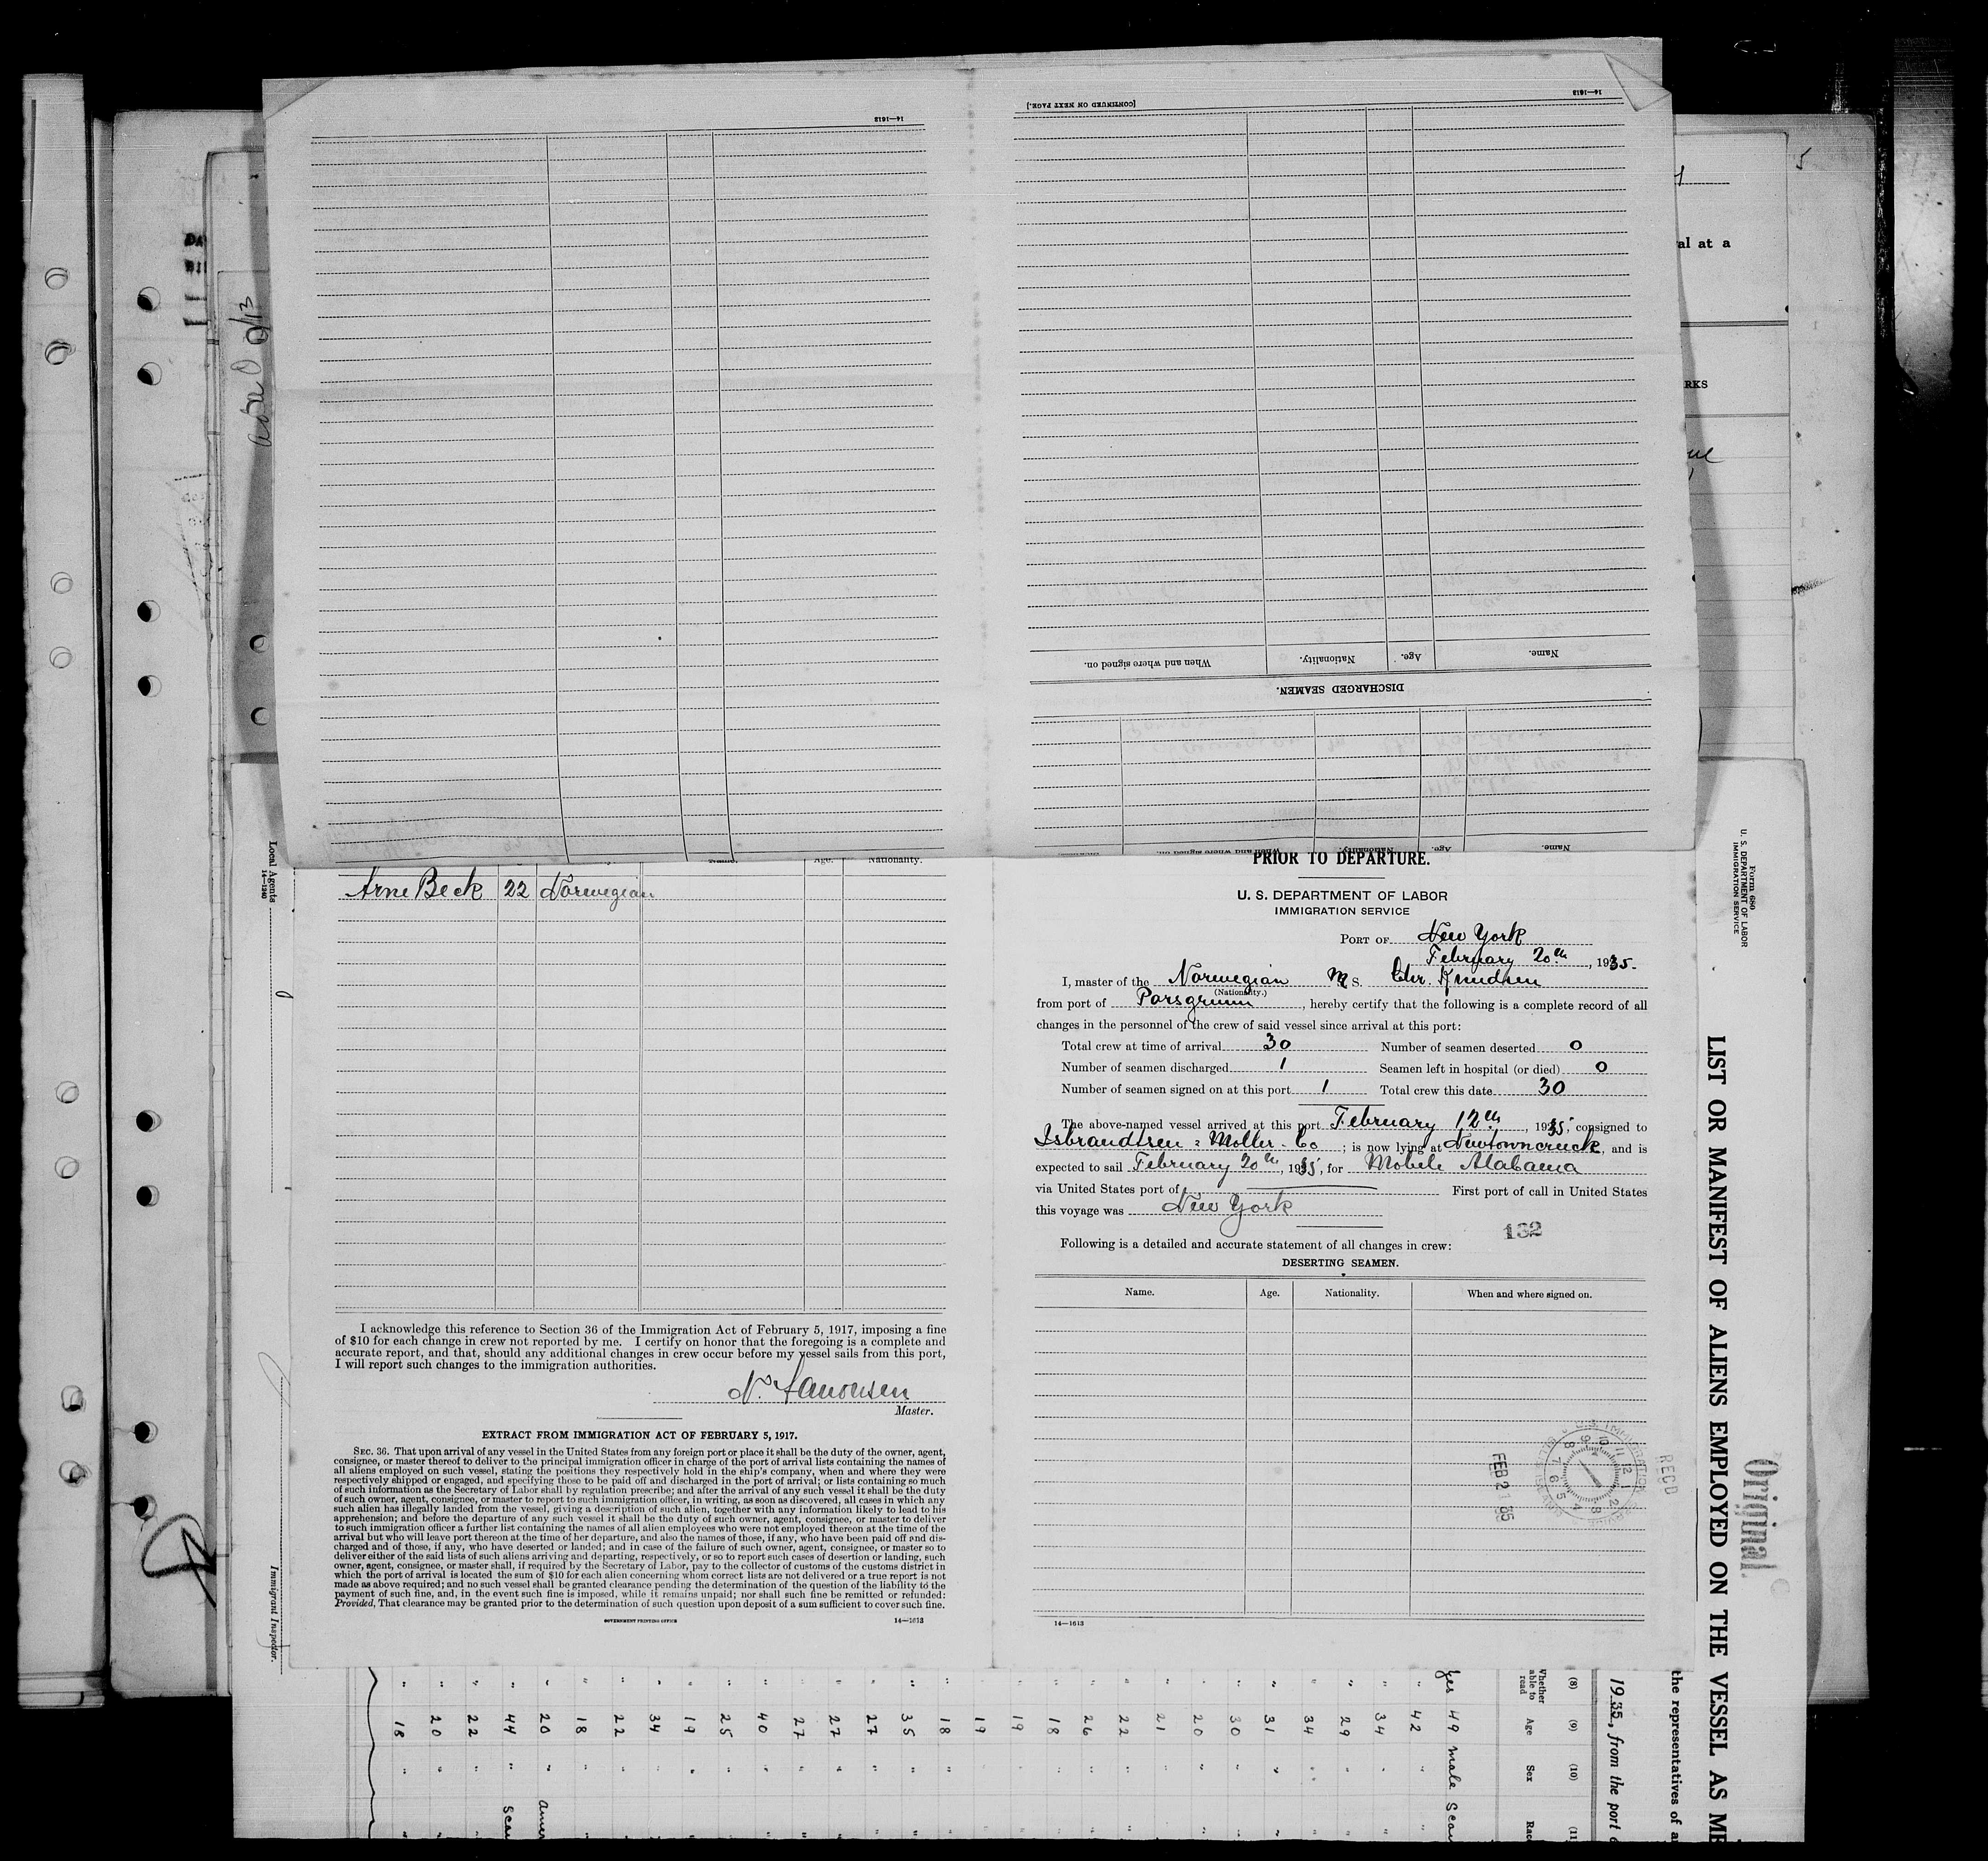 14—1613
[CONTINUED ON NEXT PAGE.]
14—1613
When and where signed on.
Nationality.
Age.
Name.
DISCHARGED SEAMEN.
When and where signed on.
Nationality.
Age.
Name.
5
al at a
RKS
Local Agents
14—1240
Age.
Nationality.
Arne Beck 22 Norwegian
I acknowledge this reference to Section 36 of the Immigration Act of February 5, 1917, imposing a fine
of $10 for each change in crew not reported by me. I certify on honor that the foregoing is a complete and
accurate report, and that, should any additional changes in crew occur before my vessel sails from this port,
I will report such changes to the immigration authorities.
Master.
EXTRACT FROM IMMIGRATION ACT OF FEBRUARY 5, 1917.
SEC. 36. That upon arrival of any vessel in the United States from any foreign port or place it shall be the duty of the owner, agent,
consignee, or master thereof to deliver to the principal immigration officer in charge of the port of arrival lists containing the names of
all aliens employed on such vessel, stating the positions they respectively hold in the ship's company, when and where they were
respectively shipped or engaged, and specifying those to be paid off and discharged in the port of arrival; or lists containing so much
of such information as the Secretary of Labor shall by regulation prescribe; and after the arrival of any such vessel it shall be the duty
of such owner, agent, consignee, or master to report to such immigration officer, in writing, as soon as discovered, all cases in which any
such alien has illegally landed from the vessel, giving a description of such alien, together with any information likely to lead to his
apprehension; and before the departure of any such vessel it shall be the duty of such owner, agent, consignee, or master to deliver
to such immigration officer a further list containing the names of all alien employees who were not employed thereon at the time of the
arrival but who will leave port thereon at the time of her departure, and also the names of those, if any, who have been paid off and dis-
charged and of those, if any, who have deserted or landed; and in case of the failure of such owner, agent, consignee, or master so to
deliver either of the said lists of such aliens arriving and departing, respectively, or so to report such cases of desertion or landing, such
owner, agent, consignee, or master shall, if required by the Secretary of Labor, pay to the collector of customs of the customs district in
which the port of arrival is located the sum of $10 for each alien concerning whom correct lists are not delivered or a true report is not
made as above required; and no such vessel shall be granted clearance pending the determination of the question of the liability to the
payment of such fine, and, in the event such fine is imposed, while it remains unpaid; nor shall such fine be remitted or refunded:
Provided, That clearance may be granted prior to the determination of such question upon deposit of a sum sufficient to cover such fine.
GOVERNMENT PRINTING OFFICE
14—1613
Immigrant Inspector.
PRIOR TO DEPARTURE.
U. S. DEPARTMENT OF LABOR
IMMIGRATION SERVICE
PORT OF New York
February 20th, 1935.
I, master of the Norwegian M S. Chr. Knudsen
(Nationality.)
from port of Porsgrunn, hereby certify that the following is a complete record of all
changes in the personnel of the crew of said vessel since arrival at this port:
Total crew at time of arrival 30 Number of seamen deserted 0
Number of seamen discharged 1 Seamen left in hospital (or died) 0
Number of seamen signed on at this port 1 Total crew this date 30
The above-named vessel arrived at this port February 12th, 1935, consigned to
Isbrandtsen : Moller. Co ; is now lying at Newtowncreek, and is
expected to sail February 20th, 1935, for Mobile Alabama
via United States port of First port of call in United States
this voyage was New York
132
Following is a detailed and accurate statement of all changes in crew:
DESERTING SEAMEN.
Name. Age. Nationality. When and where signed on.
FEB 21 35
RECD
14—1613
Form 680
U. S. DEPARTMENT OF LABOR
IMMIGRATION SERVICE
LIST OR MANIFEST OF ALIENS EMPLOYED ON THE VESSEL AS ME
Original
the representatives of a
1935, from the port
(8) (9) (10) (11)
Whether able to read Age Sex Race
yes 49 male Scan
" 42 "
" 34 "
" 29 "
" 34 "
" 31 "
" 30 "
" 20 "
" 21 "
" 22 "
" 26 "
" 18 "
" 19 "
" 19 "
" 18 "
" 35 "
" 27 "
" 27 "
" 27 "
" 40 "
" 25 "
" 19 "
" 34 "
" 22 "
" 18 "
" 20 " Amer
" 44 " Scan
" 22 "
" 20 "
" 18 "